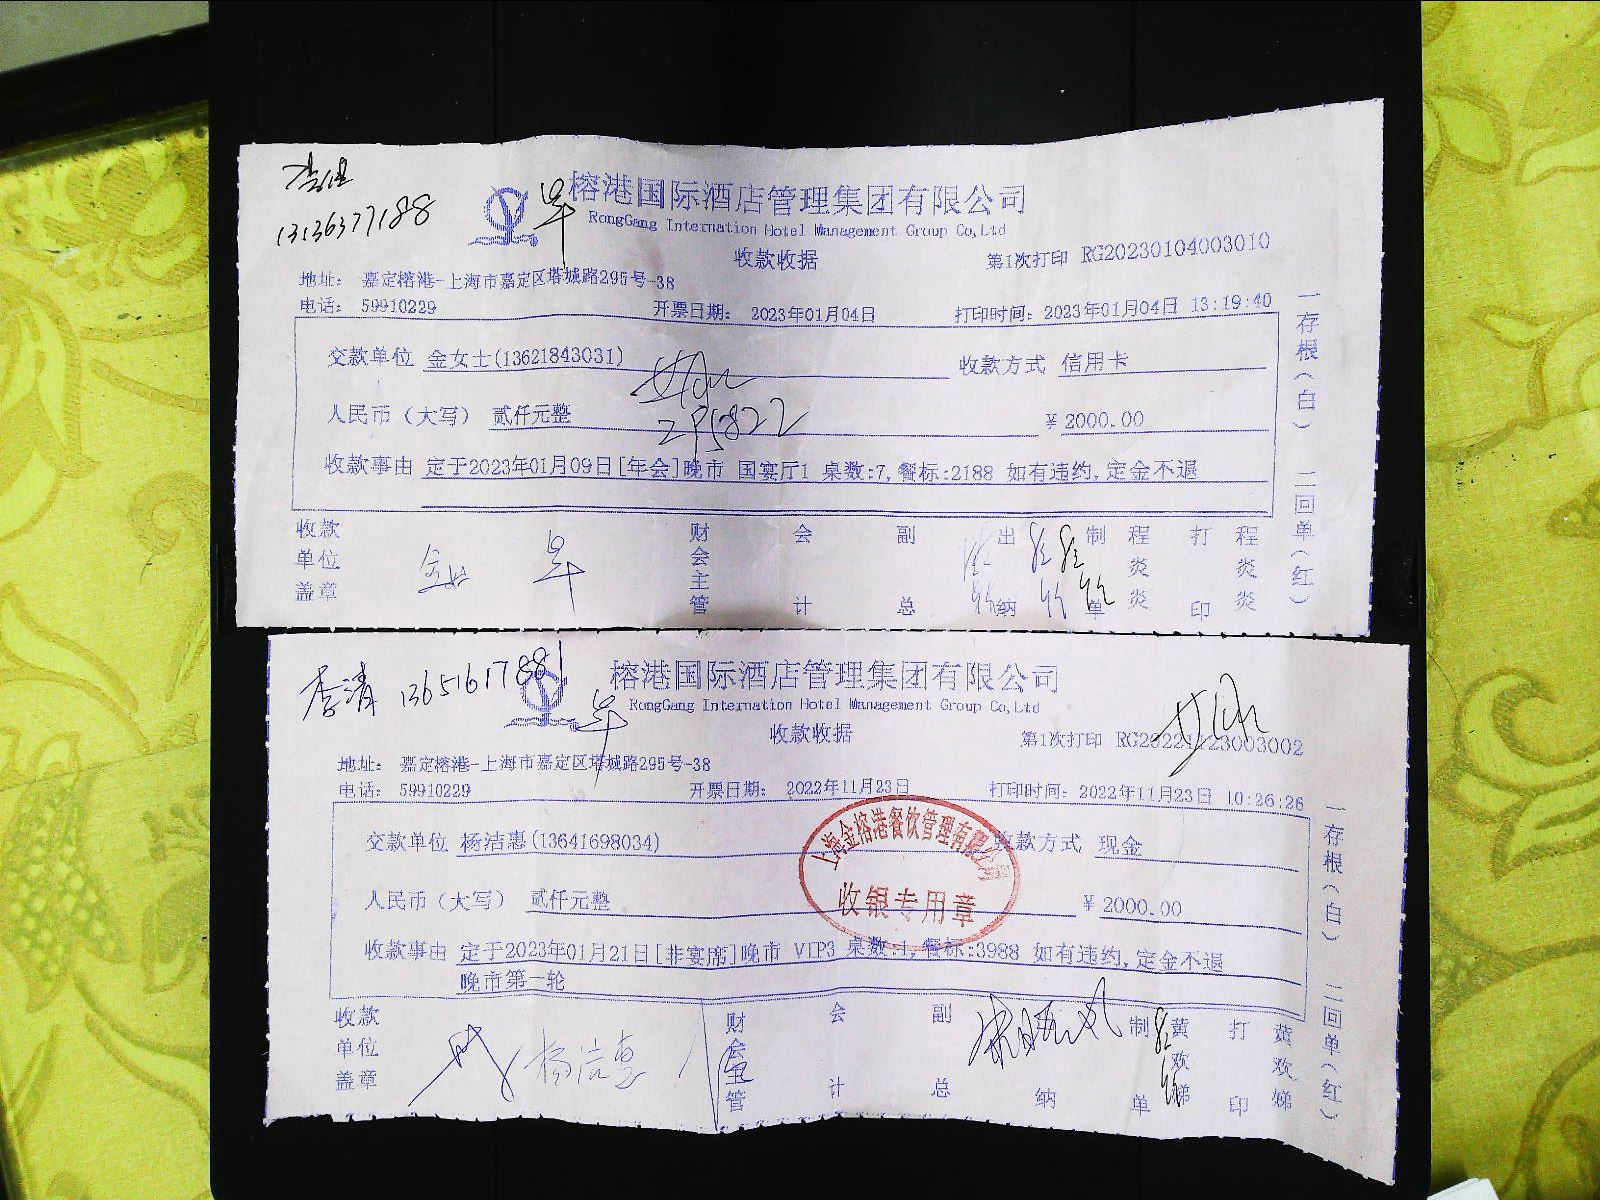 13136377188
榕港国际酒店管理集团有限公司
RongGang Internation Hotel Management Group Co,Ltd
收款收据
第1次打印 RG20230104003010
地址： 嘉定榕港-上海市嘉定区塔城路295号-38
电话： 59910229 开票日期： 2023年01月04日 打印时间： 2023年01月04日 13:19:40
交款单位 金女士(13621843031) 收款方式 信用卡
人民币（大写） 贰仟元整 ¥ 2000.00
收款事由 定于2023年01月09日[年会]晚市 国宴厅1 桌数:7,餐标:2188 如有违约,定金不退
收款单位盖章 财会主管 会计 副总 出纳 制单 程炎炎 打印 程炎炎
一存根（白） 二回单（红）
李清 13651617881
榕港国际酒店管理集团有限公司
RongGang Internation Hotel Management Group Co,Ltd
收款收据
第1次打印 RG20221123003002
地址： 嘉定榕港-上海市嘉定区塔城路295号-38
电话： 59910229 开票日期： 2022年11月23日 打印时间： 2022年11月23日 10:26:26
交款单位 杨洁惠(13641698034) 收款方式 现金
上海金榕港餐饮管理有限公司
收银专用章
人民币（大写） 贰仟元整 ¥ 2000.00
收款事由 定于2023年01月21日[非宴席]晚市 VIP3 桌数:1,餐标:3988 如有违约,定金不退
晚市第一轮
收款单位盖章 杨洁惠 财会主管 会计 副总 纳 制单 黄欢娣 打印 黄欢娣
一存根（白） 二回单（红）